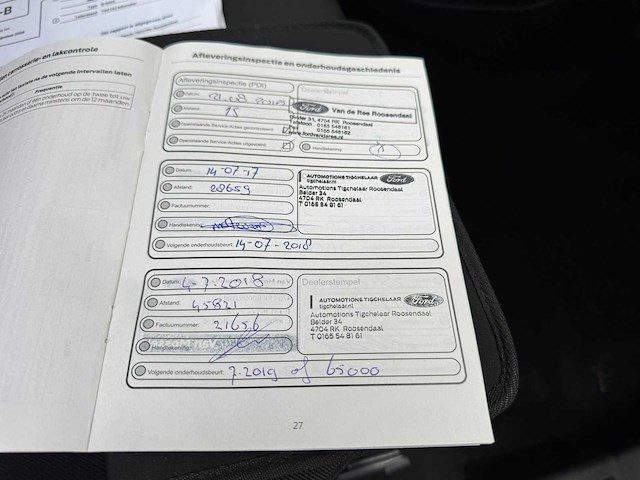 -B
carrosserie- en lakcontrole
de volgende intervallen laten
Frequentie
om de 12 maanden.
Afleveringsinspectie en onderhoudsgeschiedenis
Afleveringsinspectie (PDI)
Datum:
Afstand: 15
Openstaande Service-Acties gecontroleerd
Openstaande Service-Acties uitgevoerd
Ford
Van de Ree Roosendaal
Belder 31, 4704 RK Roosendaal
Telefoon: 0165
Handtekening:
Datum: 14-07-17
Afstand: 28659
Factuurnummer:
Handtekening:
Volgende onderhoudsbeurt: 14-07-2018
AUTOMOTIONS TIGCHELAAR
tigchelaar.nl
Ford
Automotions Tigchelaar Roosendaal
Belder 34
4704 RK Roosendaal
T 0165 54 81 61
Datum: 4-7-2018
Afstand: 45821
Factuurnummer: 21656
Handtekening:
Volgende onderhoudsbeurt: 7-2019 of 65000
Dealerstempel
AUTOMOTIONS TIGCHELAAR
tigchelaar.nl
Ford
Automotions Tigchelaar Roosendaal
Belder 34
4704 RK Roosendaal
T 0165 54 81 61
27